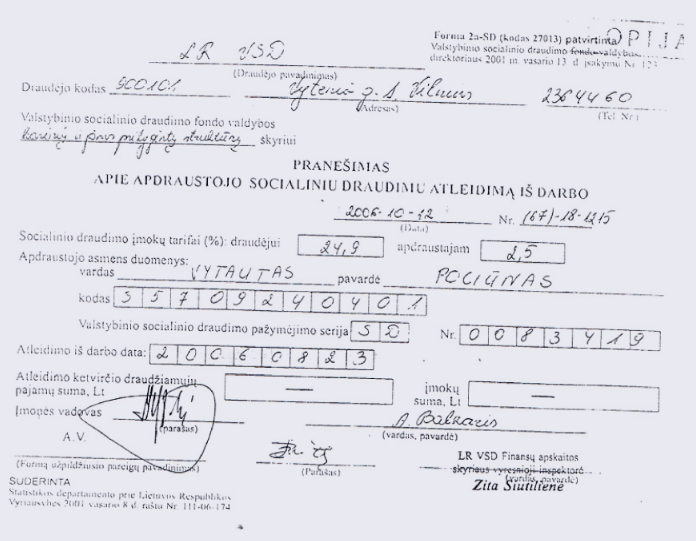 Forma 2a-SD (kodas 27013) patvirtinta
OPIJA
Valstybinio socialinio draudimo fondo valdybos
direktoriaus 2001 m. vasario 13 d. įsakymu Nr. 123
LR VSD
(Draudėjo pavadinimas)
Draudėjo kodas 900101 Vytenio g. 1 Vilnius 2364460
(Adresas) (Tel. Nr.)
Valstybinio socialinio draudimo fondo valdybos
Karinių ir jiems prilygintų struktūrų skyriui
PRANEŠIMAS
APIE APDRAUSTOJO SOCIALINIU DRAUDIMU ATLEIDIMĄ IŠ DARBO
2006-10-12 Nr. (67)-18-1215
(Data)
Socialinio draudimo įmokų tarifai (%): draudėjui 24,9 apdraustajam 2,5
Apdraustojo asmens duomenys:
vardas VYTAUTAS pavardė POCIŪNAS
kodas 35709240401
Valstybinio socialinio draudimo pažymėjimo serija SD Nr. 0083419
Atleidimo iš darbo data: 20060823
Atleidimo ketvirčio draudžiamųjų
pajamų suma, Lt — įmokų
suma, Lt —
Įmonės vadovas
(parašas) (vardas, pavardė)
A.V.
(Formą užpildžiusio pareigų pavadinimas) (Parašas) (vardas, pavardė)
LR VSD Finansų apskaitos
skyriaus vyresnioji inspektorė
Zita Siutilienė
SUDERINTA
Statistikos departamento prie Lietuvos Respublikos
Vyriausybės 2001 vasario 8 d. raštu Nr. 111-06-174